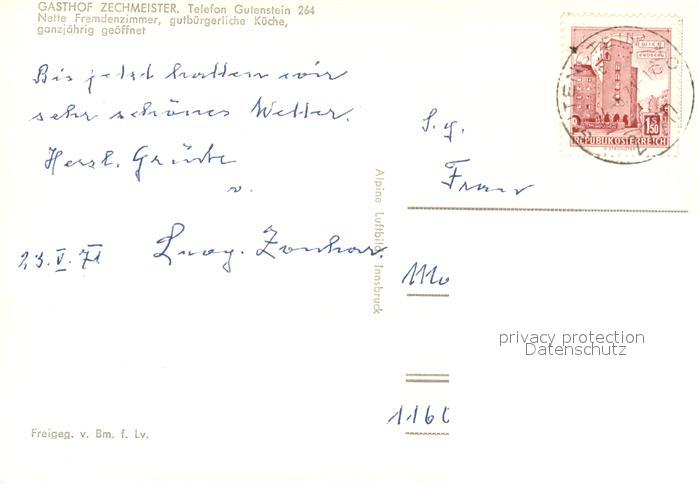 GASTHOF ZECHMEISTER. Telefon Gutenstein 264
Nette Fremdenzimmer, gutbürgerliche Küche,
ganzjährig geöffnet
Bis jetzt hatten wir
sehr schönes Wetter.
Herzl. Grüße
v.
23.V.71
S. g.
Frau
1160
Alpine Luftbild, Innsbruck
Freigeg. v. Bm. f. Lv.
WIEN
ERDBERG
1.50
REPUBLIK ÖSTERREICH
privacy protection
Datenschutz